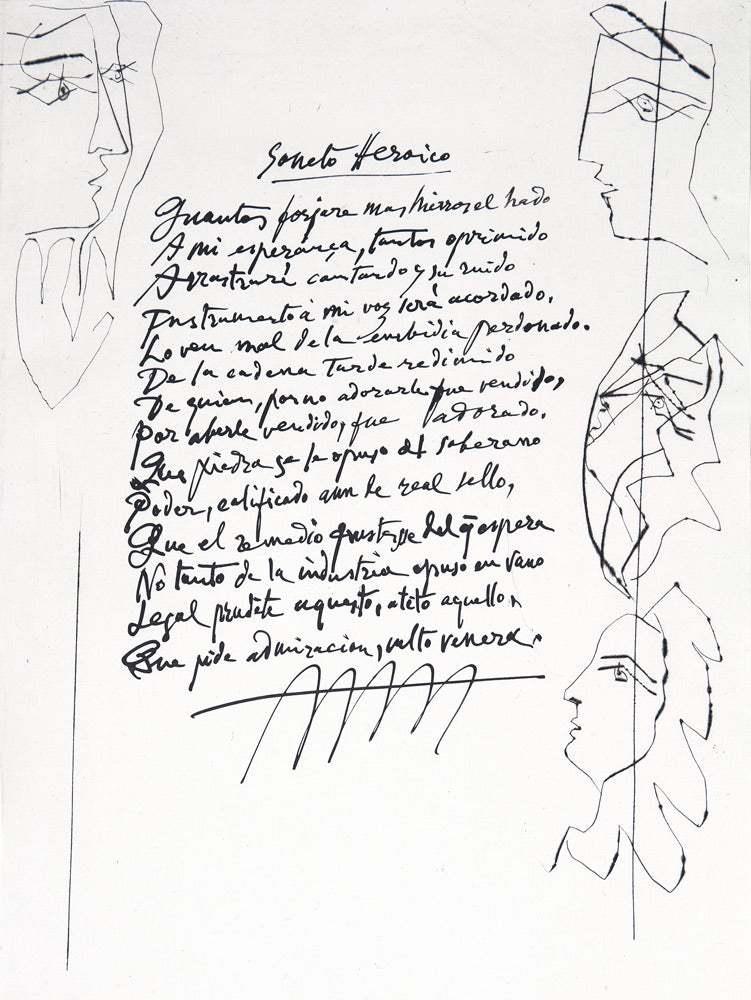 Soneto Heroico
Quantos forjare mas hierros el hado
A mi esperança, tantos oprimido
Arrastraré cantando y su ruido
Instrumento à mi voz será acordado.
Lo ven mal de la embidia perdonado.
De la cadena Tarde redimido
De quien, por no adorarle fue vendido,
Por aberle vendido, fue adorado.
Que piedra se le opuso al soberano
Poder, calificado aun de real sello,
Que el remedio frustasse del q espera
No tanto de la industria opuso en vano
Legal prudēte aquesto, atēto aquello,
Que pide admiracion, culto venera.